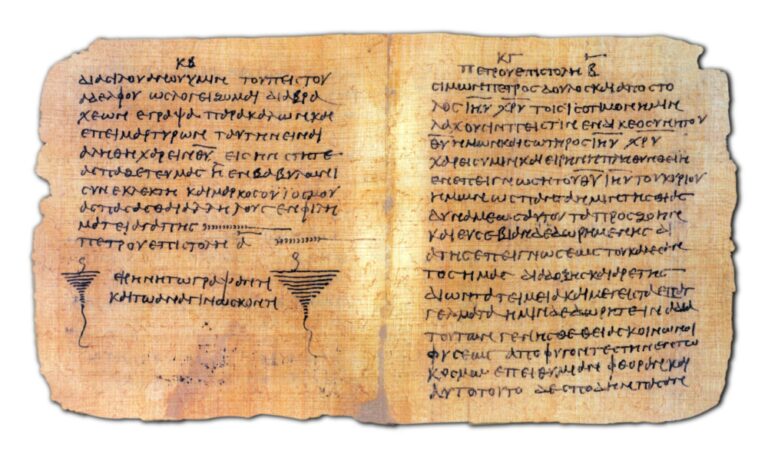 ΚΒ
διασιλουανωυϋμιν τουπιστου
αδελφου ωςλογειζωμαι διαβρα
χεων εγραψα παρακαλων και
επειμαρτυρων ταυτην ειναι
αληθη χαρειν θ̅υ̅ εις ην στητε
ασπαζετε υμας η εν βαβυλωνι
συνεκλεκτη και μαρκος ο υιος μου
ασπασασθαι αλληλους εν φιλη
ματι αγαπης
πετρου επιστολη α̅
ειρηνη τω γραψαντι
και τω αναγινωσκοντι
ΚΓ
πετρου επιστολη β̅
σιμων πετρος δουλος και αποστο
λος ι̅η̅υ̅ χ̅ρ̅υ̅ τοις ϊσοτιμον ημιν
λαχουσιν πιστιν εν δικεοσυνη του
θ̅υ̅ ημων και σωτηρος ι̅η̅υ̅ χ̅ρ̅υ̅
χαρις υμιν και ειρηνη πληθυνθειη
εν επειγνωσι του θ̅υ̅ ι̅η̅υ̅ του κυριου
ημων ως παντα ημιν της θειας
δυναμεως αυτου τα προς ζωην
και ευσεβιαν δεδωρημενης δι
α της επειγνωσεως του καλεσαν
τος ημας δια δοξης και αρετης
δι ων τα τειμεια και μεγειστα επαγ
γελματα ημιν δεδωρητε ινα δια
τουτων γενησθε θειας κοινωνοι
φυσεως αποφυγοντες την εν τω
κοσμω επειθυμιαν φθοραν και
αυτο τουτο δε σπουδην πασαν